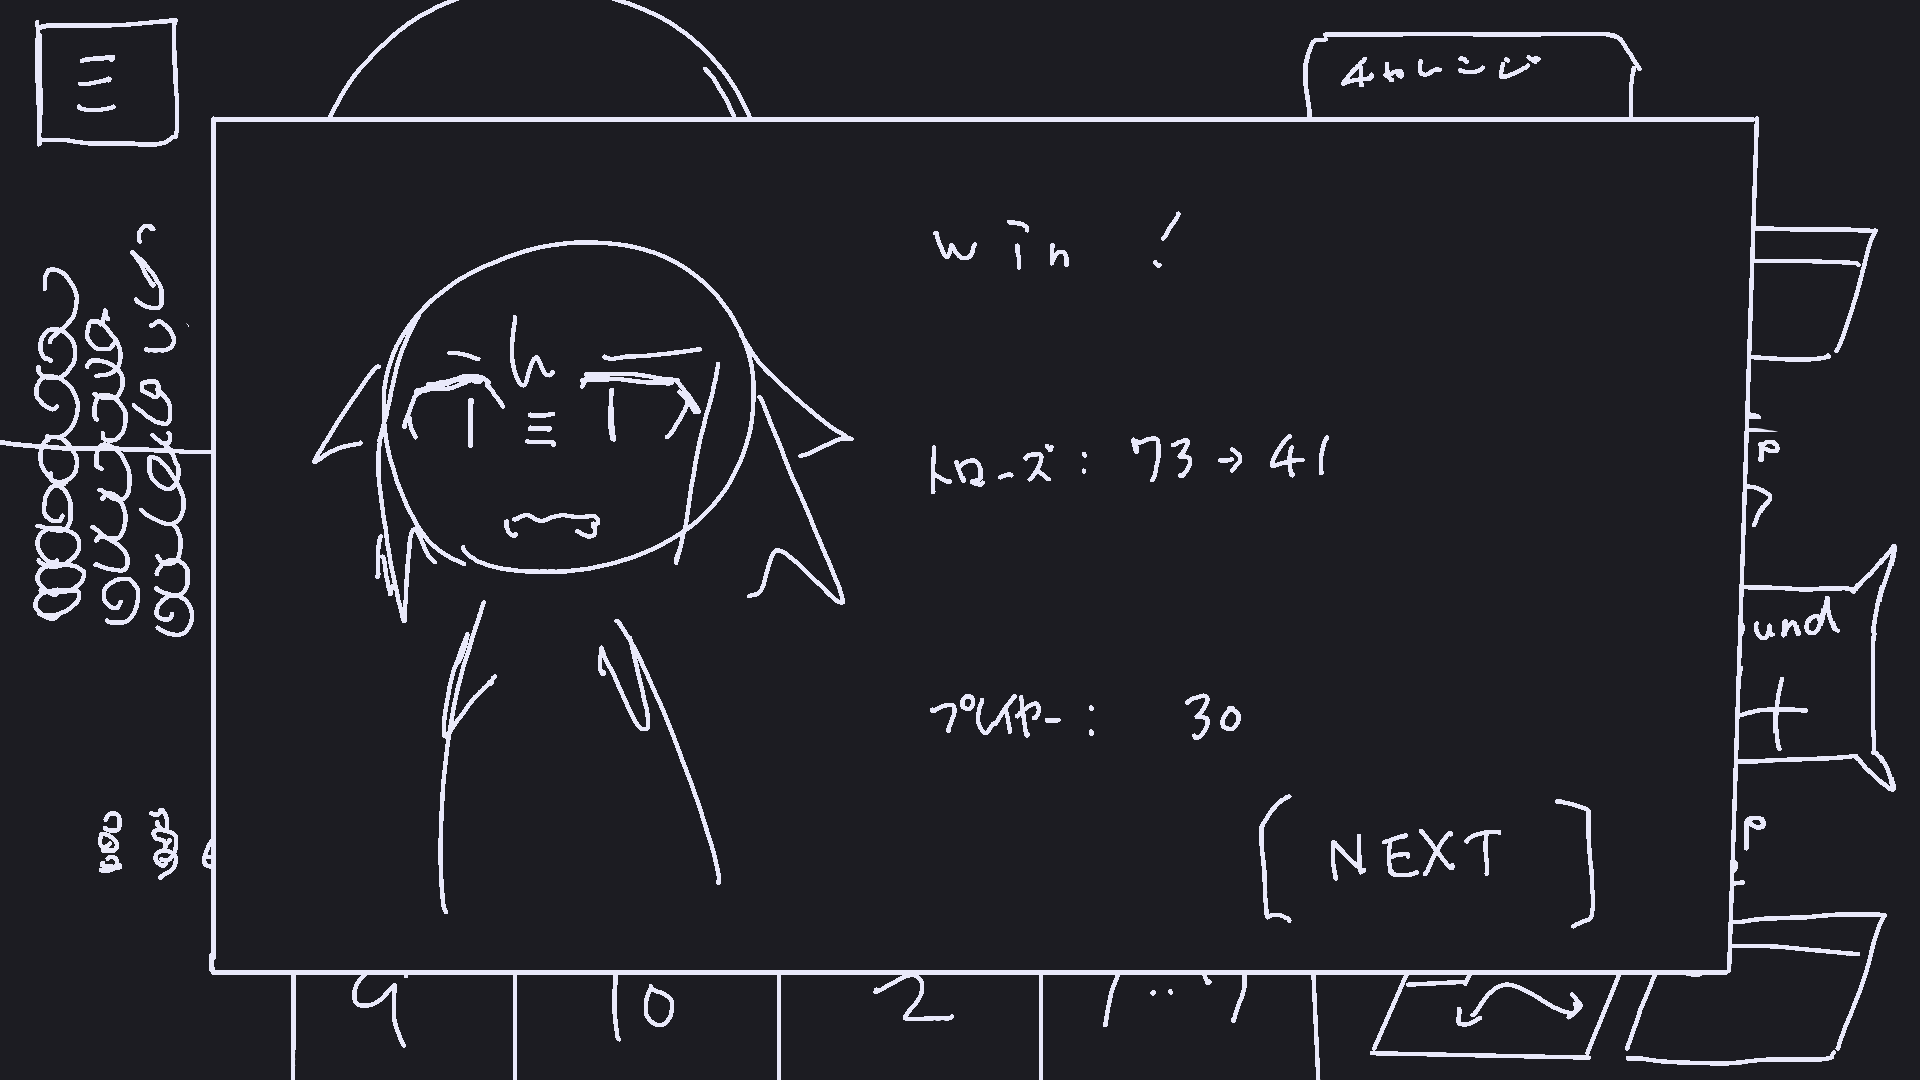 チャレンジ
win !
トローズ : 73→41
プレイヤー : 30
NEXT
und
+
P
P
9 10 2